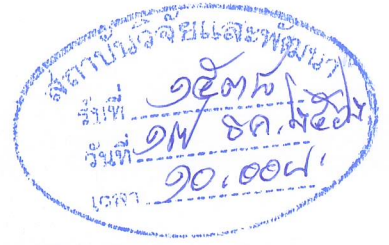 สถาบันวิจัยและพัฒนา
รับที่ ๑๕๓๘
วันที่ ๑๗ ธค. ๒๕๖๒
เวลา ๑๐.๐๐น.